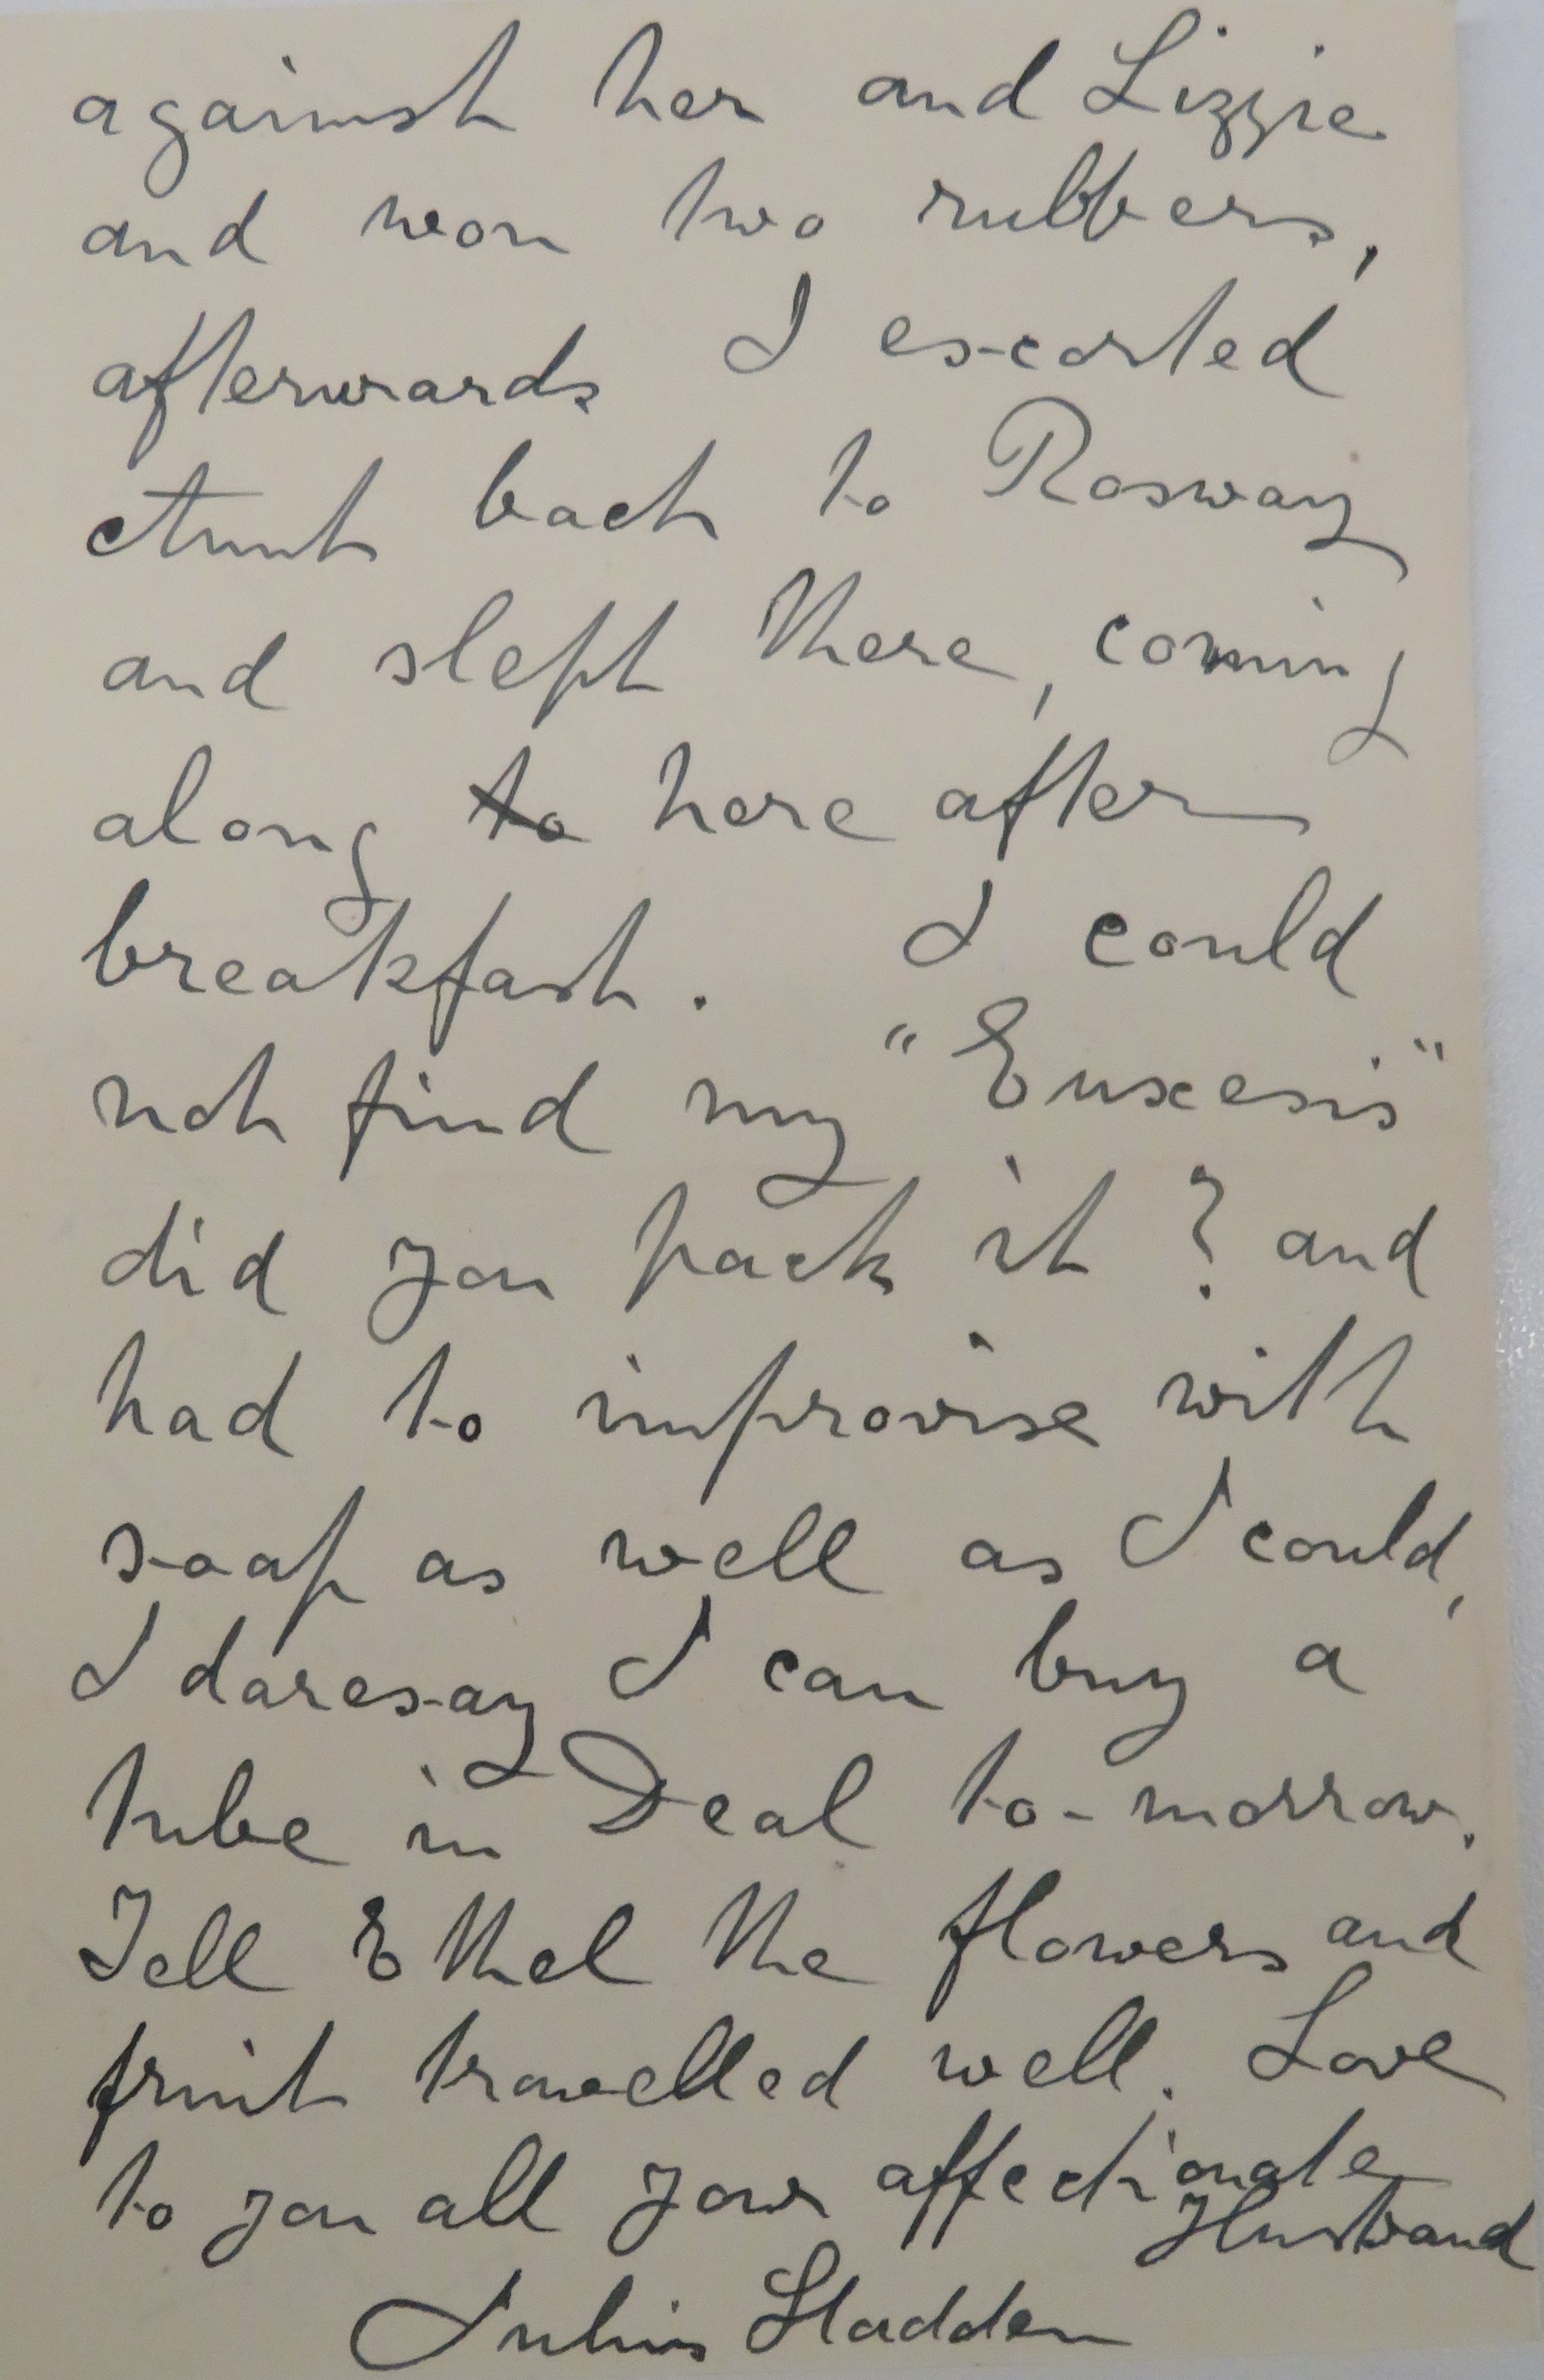 against her and Lizzie
and won two rubbers,
afterwards I escorted
Aunt back to Rosway
and slept there, coming
along to here after
breakfast. I could
not find my "Euxesis"
did you pack it? and
had to improvise with
soap as well as I could,
I daresay I can buy a
tube in Deal to-morrow.
Tell Ethel the flowers and
fruit travelled well. Love
to you all your affectionate
Husband
Julius Sladden